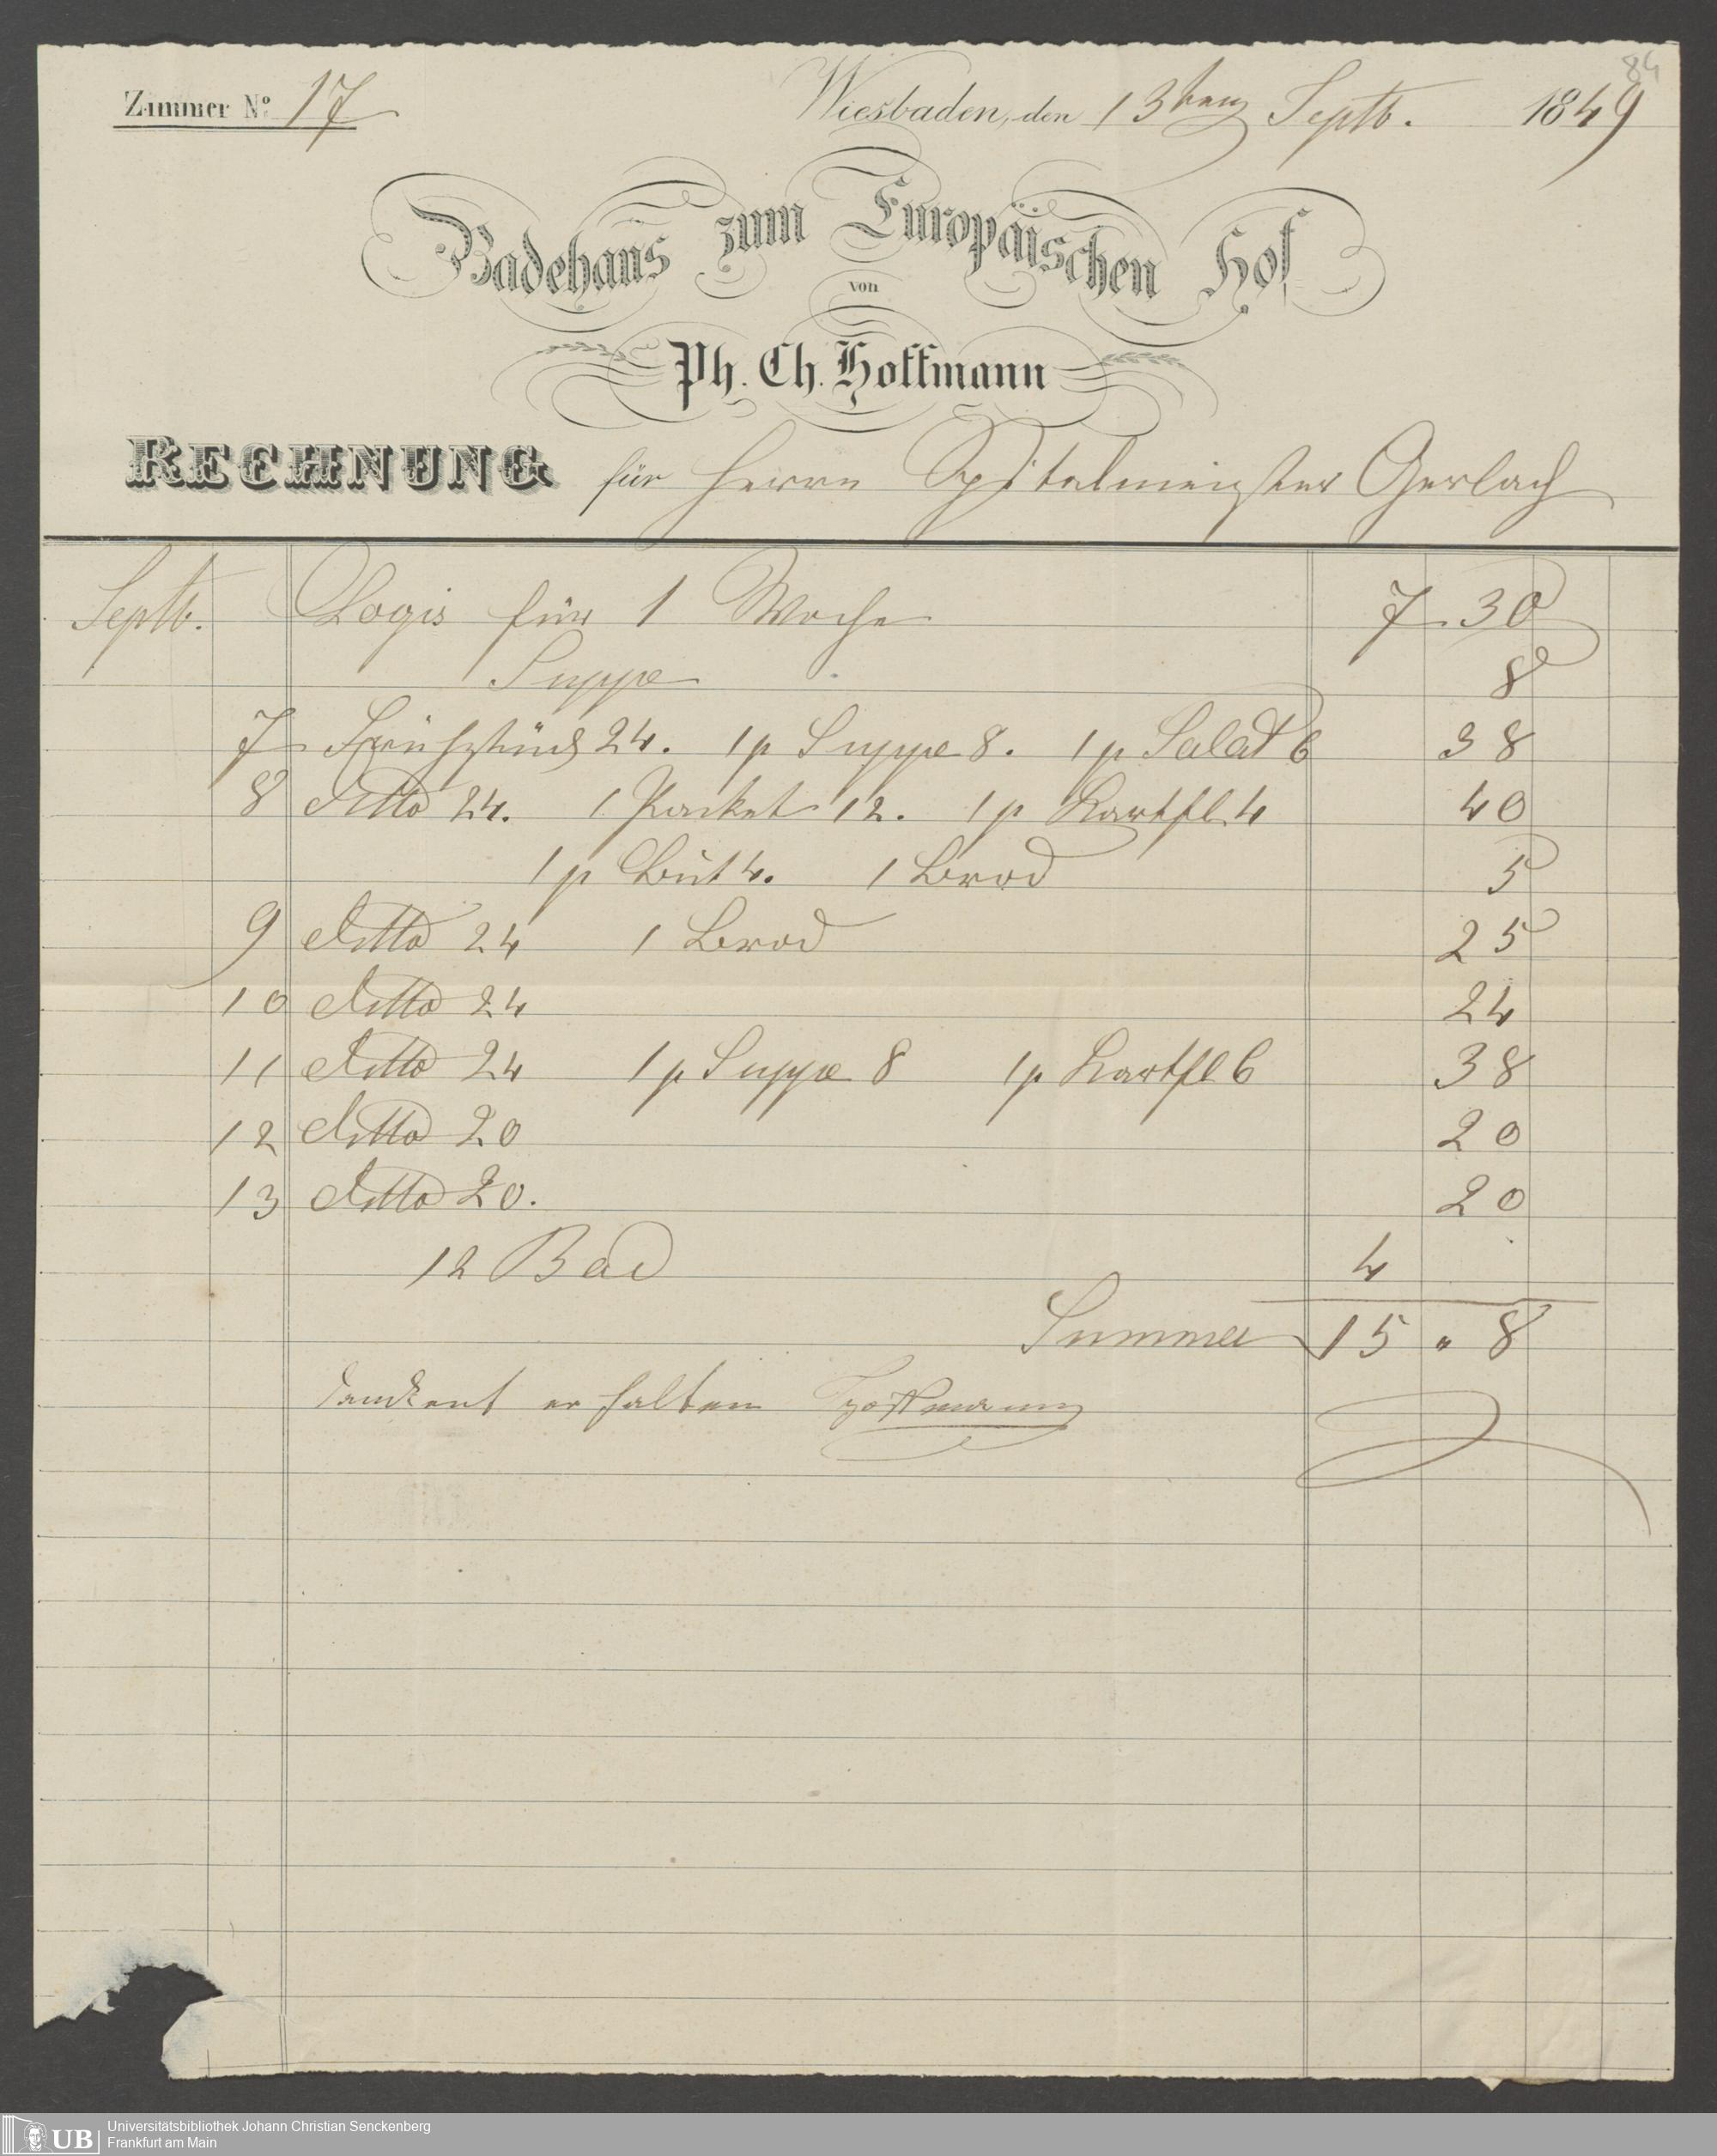 84
Zimmer No. 17
Wiesbaden, den 13ten Septb. 1849
Badehaus zum Europäischen Hof
von
Ph. Ch. Hoffmann
RECHNUNG für Herrn Spitalmeister Gerlach
Septb. Logis für 1 Woche 7 30
Suppe 8
7 Frühstück 24. 1 p Suppe 8. 1 p Salat 6 38
8 ditto 24. 1 Packet 12. 1 p Kartfl. 4 40
1 p But 4. 1 Brod 5
9 ditto 24 1 Brod 25
10 ditto 24 24
11 ditto 24 1 p Suppe 8 1 p Kartfl 6 38
12 ditto 20 20
13 ditto 20. 20
12 Bad 4
Summa 15 " 8
dankent erhalten Hoffmann
UB Universitätsbibliothek Johann Christian Senckenberg
Frankfurt am Main